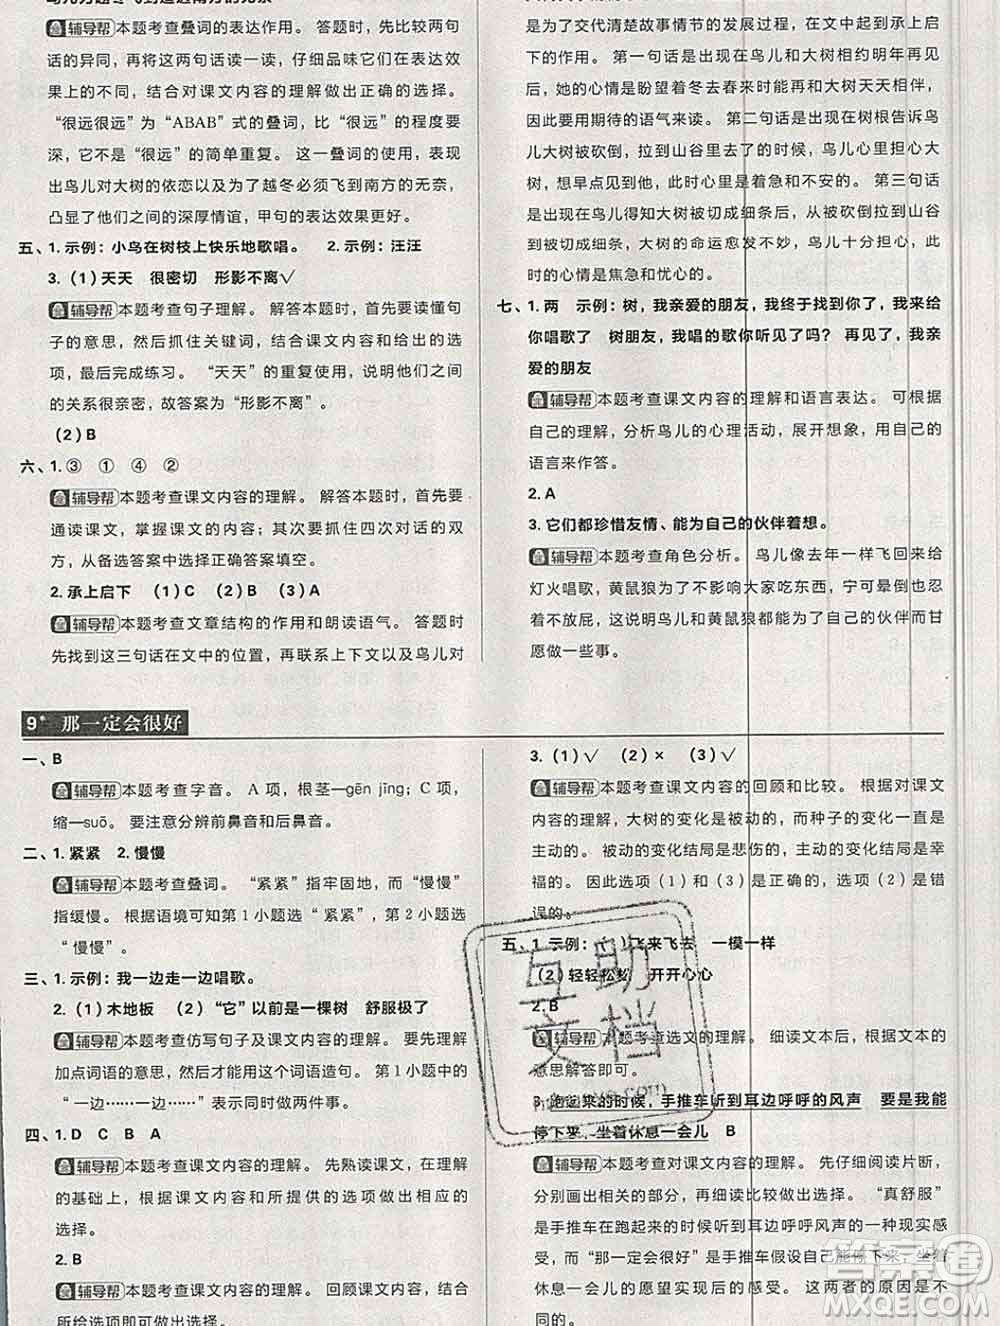 辅导帮 本题考查叠词的表达作用。 答题时, 先读两句
话的异同, 再将这两句话读一读, 仔细品味它们表达效
果上的不同, 结合对课文内容的理解做出正确的选择。
“很远很远”为“ABAB”式的叠词, 比“很远”的程度要
深, 它不是“很远”的简单重复。 这一叠词的使用, 表现
出鸟儿对大树的依恋以及为了越冬必须飞到南方的无奈,
凸显了他们之间的深厚情谊, 甲句的表达效果更好。
五、1. 示例: 小鸟在树枝上快乐地歌唱。 2. 示例: 汪汪
3. (1) 天天 很密切 形影不离√
辅导帮 本题考查句子理解。 解答本题时, 首先要读懂句
子的意思, 然后抓住关键词, 结合课文内容和给出的选
项, 最后完成练习。 “天天”的重复使用, 说明他们之间
的关系很亲密, 故答案为“形影不离”。
(2) B
六、1. ③ ① ④ ②
辅导帮 本题考查课文内容的理解。 解答本题时, 首先要
通读课文, 掌握课文的内容; 其次要抓住四次对话的双
方, 从备选答案中选择正确答案填空。
2. 承上启下 (1) C (2) B (3) A
辅导帮 本题考查文章结构的作用和朗读语气。 答题时
先找到这三句话在文中的位置, 再联系上下文以及鸟儿对
是为了交代清楚故事情节的发展过程, 在文中起承上启
下的作用。 第一句话是出现在鸟儿和大树相约明年再见
后, 她的心情是盼望着冬去春来时能和大树天天相伴,
因此要用期待的语气来读。 第二句话是出现在树根告诉鸟
儿大树被砍倒, 拉到山谷里去了的时候, 鸟儿心里非常担
心, 想早点见到大树, 此时心里是着急和不安的。 第三句话
是出现在鸟儿得知大树被切成细条后, 从被砍倒拉到山谷
到切成细条, 大树的命运愈发不妙, 鸟儿十分担心, 此
时的心情是焦急和忧心的。
七、1. 两 示例: 树, 我亲爱的朋友, 我终于找到你了, 我来给
你唱歌了 树朋友, 我唱的歌你听见了吗? 再见了, 我亲
爱的朋友
辅导帮 本题考查课文内容的理解和语言表达。 可以根据
自己的理解, 分析鸟儿的心理活动, 展开想象, 用自己的
语言来作答。
2. A
3. 它们都珍惜友情、能为自己的伙伴着想。
辅导帮 本题考查角色分析。 鸟儿像去年一样飞回来给
灯火唱歌, 黄鼠狼为了不影响大家吃东西, 宁可晕倒忍
着不放屁, 这说明鸟儿和黄鼠狼都能为自己的伙伴而甘
愿做一些事。
9* 那一定会很好
一、B
辅导帮 本题考查字音。 A 项, 根茎—gēn jīng; C 项,
缩—suō。 要注意分辨前鼻音和后鼻音。
二、1. 紧紧 2. 慢慢
辅导帮 本题考查叠词。 “紧紧”指牢固地, 而“慢慢”
指缓慢。 根据语境可知第 1 小题选“紧紧”, 第 2 小题选
“慢慢”。
三、1. 示例: 我一边走一边唱歌。
2. (1) 木地板 (2) “它”以前是一棵树 舒服极了
辅导帮 本题考查仿写句子及课文内容的理解。 要先理解
加点词语的意思, 然后再用这个词语造句。 第 1 小题中的
“一边……一边……”表示同时做两件事。
四、1. D C B A
辅导帮 本题考查课文内容的理解。 先熟读课文, 在理解
的基础上, 根据课文内容和所提供的选项做出相应的
选择。
2. B
辅导帮 本题考查课文内容的理解。 回顾课文内容, 结合
所给选项即可做出选择。
3. (1) √ (2) × (3) √
辅导帮 本题考查课文内容的回顾和比较。 根据对课文
内容的理解, 大树的变化是被动的, 而种子的变化一直是
主动的。 被动的变化结局是悲伤的, 主动的变化结局是幸
福的。 因此选项 (1) 和 (3) 是正确的, 选项 (2) 是错
误的。
五、1. 示例: (1) 飞来飞去 一模一样
(2) 轻轻松松 开开心心
2. B
辅导帮 本题考查选文的理解。 细读文本后, 根据文本的
意思解答即可。
3. 跑起来的时候, 手推车听到耳边呼呼的风声 要是我能
停下来, 坐着休息一会儿 B
辅导帮 本题考查对课文内容的理解。 先仔细阅读片断,
分别画出相关的部分, 再细读比较情感的不同。 “真舒服”
是手推车在跑起来的时候听到耳边呼呼风声的一种现实感
受, 而“那一定会很好”是手推车假设自己能停下来、坐着
休息一会儿的愿望实现后的感受。 这两者的原因是不
同的。
互助
文档
答案圈
MXQE.COM